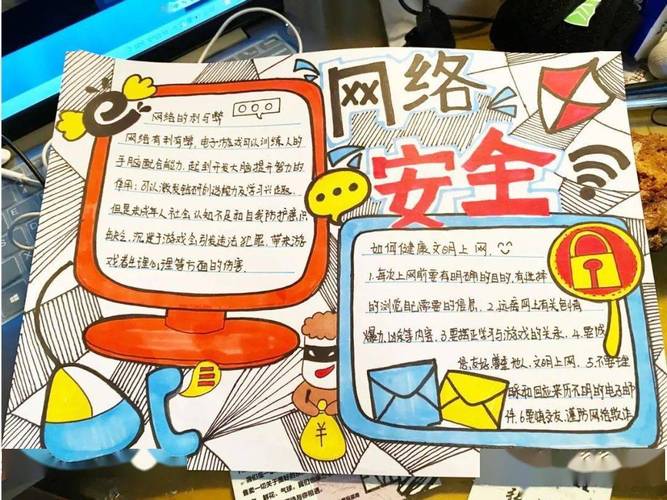 网络
安全
网络的利与弊
网络有利有弊,电子游戏可以训练人的
手脑配合能力,起到开发大脑提升智力的
作用;可以激发创造能力及学习兴趣。
但是未成年人社会认知不足和自我防护意识
缺乏,沉迷于游戏会引发违法犯罪,带来游
戏者生理心理等方面的伤害.
如何健康文明上网.
1.每次上网前要有明确的目的,有选择
的浏览自己需要的信息. 2.远离网上有关色情
暴力,凶杀等内容. 3.要摆正学习与游戏的关系. 4.要
尊重他人,文明上网. 5.不要
和回应来历不明的电子邮
件. 6.要慎交友,遵防网络
¥